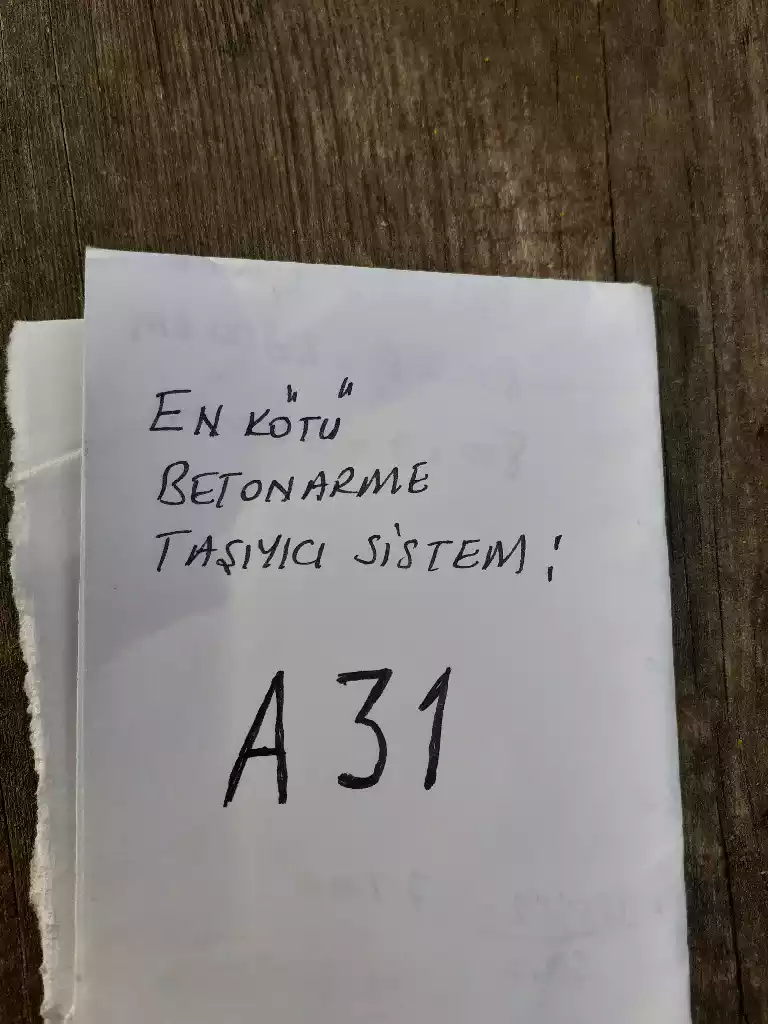 EN KÖTÜ
BETONARME
TAŞIYICI SİSTEM!
A31